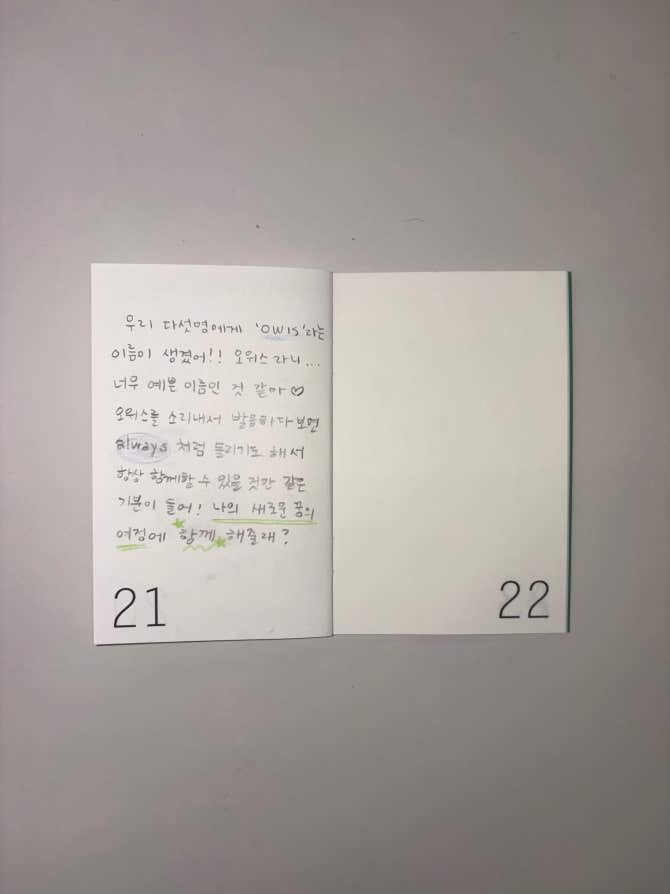 우리 다섯명에게 'OWIS'라는
이름이 생겼어!! 오위스라니...
너무 예쁜 이름인 것 같아♡
오위스를 소리내서 발음하다보면
always 처럼 들리기도 해서
항상 함께할 수 있을 것만 같은
기분이 들어! 나의 새로운 꿈의
여정에 함께 해줄래?
21
22